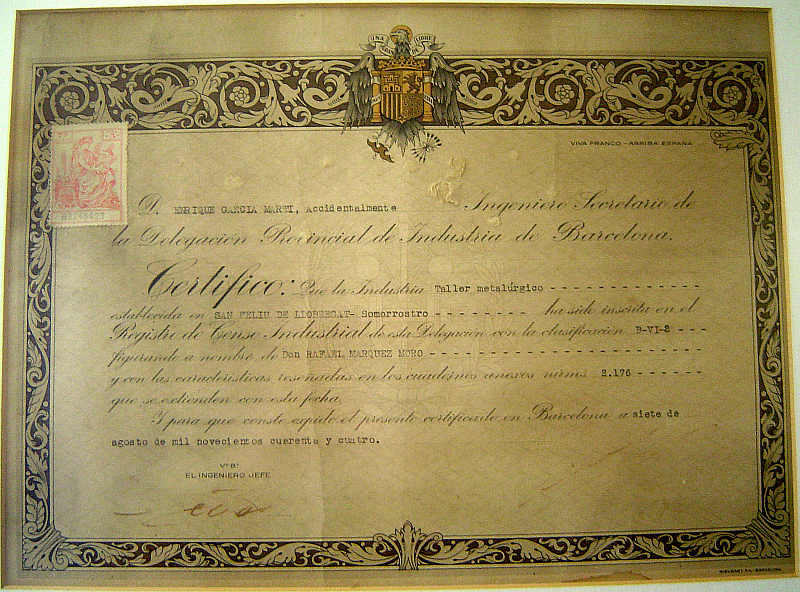 UNA
LIBRE
VIVA FRANCO - ARRIBA ESPAÑA
D. ENRIQUE GARCIA MARTI, Accidentalmente Ingeniero Secretario de
la Delegación Provincial de Industria de Barcelona.
Certifico: Que la Industria Taller metalúrgico - - - - - - - - - - - - - -
establecida en SAN FELIU DE LLOBREGAT- Somorrostro - - - - - - - - ha sido inscrita en el
Registro de Censo Industrial de esta Delegación con la clasificación B-VI-2 - - -
figurando a nombre de Don RAFAEL MARQUEZ MORO - - - - - - - - - - - - - - - - - - - - - - - -
y con las características reseñadas en los cuadernos anexos núms. 2.176 - - - - - -
que se extienden con esta fecha.
Y para que conste expido el presente certificado en Barcelona a siete de
agosto de mil novecientos cuarenta y cuatro.
Vº Bº
EL INGENIERO JEFE